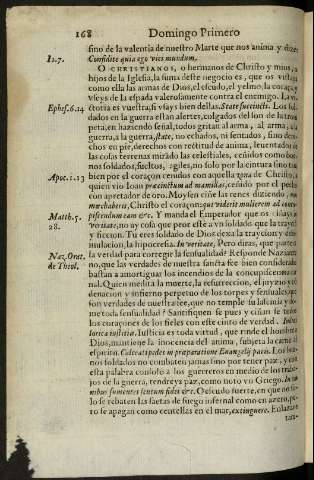 168 Domingo Primero
sino de la valentia de nuestro Marte que nos anima y dize:
Io.7. Confidite quia ego vici mundum.
O CHRISTIANOS, o hermanos de Christo y mios, o
hijos de la Iglesia, la suma deste negocio es, que os vistays
como ella las armas de Dios, el escudo, el yelmo, la coraça, y
vseys de la espada valerosamente contra el enemigo. La vi-
ctoria es vuestra, si vsays bien dellas. State succincti. Los sol-
Ephes.6.14
dados en la guerra estan alertes, colgados del son de la trom
peta, en haziendo señal, todos gritan al arma, al arma, a la
guerra, a la guerra, state, no echados, ni sentados, sino dere-
chos en pie, derechos con rectitud de animo, leuantados de
las cosas terrenas mirado las celestiales, ceñidos como bue-
nos soldados, sueltos, agiles, no solo por la cintura sino tam
bien por el coraçon ceñidos con aquella zona de Christo, a
Apoc.1.13
quien vio Ioan præcinctum ad mamillas, ceñido por el pecho
con apretador de oro. Muy bien ciñe las renes diziendo, non
mœchaberis, Christo el coraçon: qui viderit mulierem ad concu-
Matth.5.
28.
piscendum eam &c. Y manda el Emperador que os ciñays in
veritate, no ay cosa que peor esté a vn soldado que la traycion
y ficcion. Tu eres soldado de Dios dexa la traycion y dissi-
mulacion, la hipocresia. In veritate, Pero diras, que parte es
la verdad para corregir la sensualidad? Responde Nazianze
Naz. Orat.
de Theol.
no, que las verdades de nuestra sancta fee bien consideradas
bastan a amortiguar los incendios de la concupiscencia car
nal. Quien medita la muerte, la resurreccion, el juyzio y co
denacion y infierno perpetuo de los torpes y sensuales, que
son verdades de nuestra fee, que no temple su lasciuia y do-
me toda sensualidad? Santifiquen se pues y ciñan se todos
los coraçones de los fieles con este cinto de verdad. Induti
lorica iustitiæ. Iusticia es toda virtud, que rinde el hombre a
Dios, mantiene la inocencia del anima, subjeta la carne al
espiritu. Calceati pedes in præparatione Euangelij pacis. Los bue-
nos soldados no combaten jamas sino por tener paz, y con
esta palabra consolo a los guerreros en medio de los traba-
jos de la guerra, tendreys paz, como noto vn Griego. In om
nibus sumentes scutum fidei &c. O escudo fuerte, en que no so
lo se rebaten las saetas de fuego infernal como en azero, pe-
ro se apagan como centellas en el mar, extinguere. Enlazaos
tan-